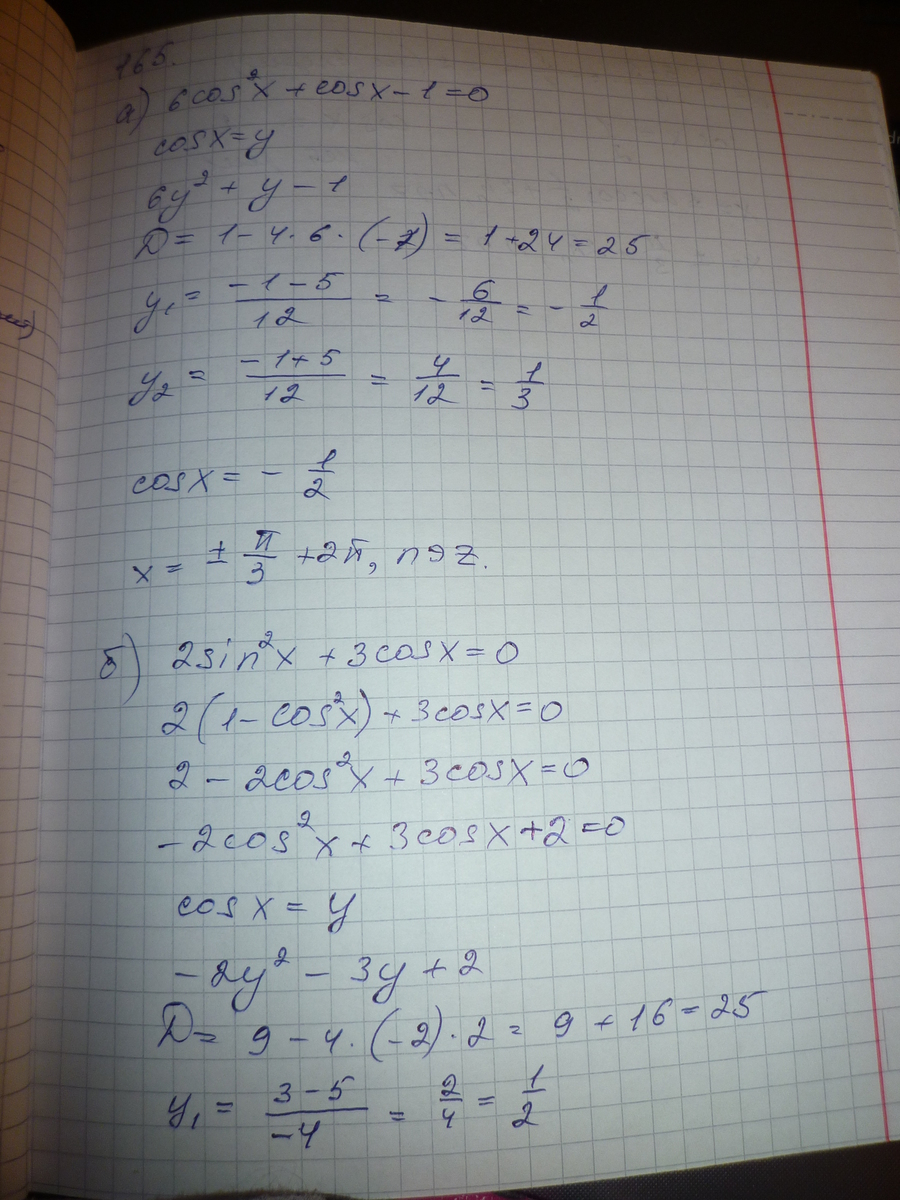 165.
а) 6cos²x + cosx - 1 = 0
cosx = y
6y² + y - 1
D = 1 - 4·6·(-1) = 1 + 24 = 25
y₁ = (-1-5)/12 = - 6/12 = - 1/2
y₂ = (-1+5)/12 = 4/12 = 1/3
cosx = - 1/2
x = ± π/3 + 2π, n э z.
б) 2sin²x + 3cosx = 0
2(1 - cos²x) + 3cosx = 0
2 - 2cos²x + 3cosx = 0
-2cos²x + 3cosx + 2 = 0
cosx = y
-2y² - 3y + 2
D = 9 - 4·(-2)·2 = 9 + 16 = 25
y₁ = (3-5)/-4 = 2/4 = 1/2